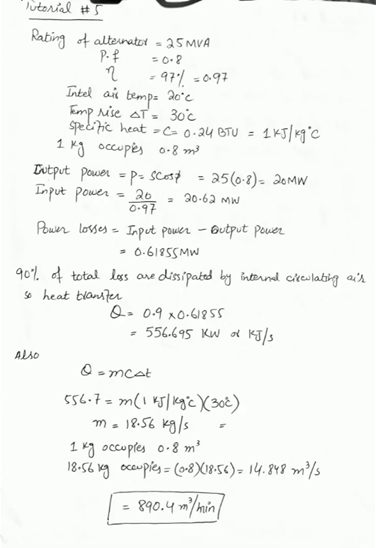 Tutorial #5
Rating of alternator = 25 MVA
P.f = 0.8
η = 97% = 0.97
Intel air temp = 20°C
Temp rise ΔT = 30°C
Specific heat = C = 0.24 BTU = 1 KJ/kg°C
1 Kg occupies 0.8 m³
Output power = P = SCosϕ = 25(0.8) = 20MW
Input power = 20/0.97 = 20.62 MW
Power losses = Input power - Output power
= 0.61855MW
90% of total loss are dissipated by internal circulating air
so heat transfer
Q = 0.9 x 0.61855
= 556.695 KW or KJ/s
Also
Q = mcΔt
556.7 = m(1 KJ/kg°C)(30°C)
m = 18.56 kg/s =
1 kg occupies 0.8 m³
18.56 kg occupies = (0.8)(18.56) = 14.848 m³/s
= 890.4 m³/min